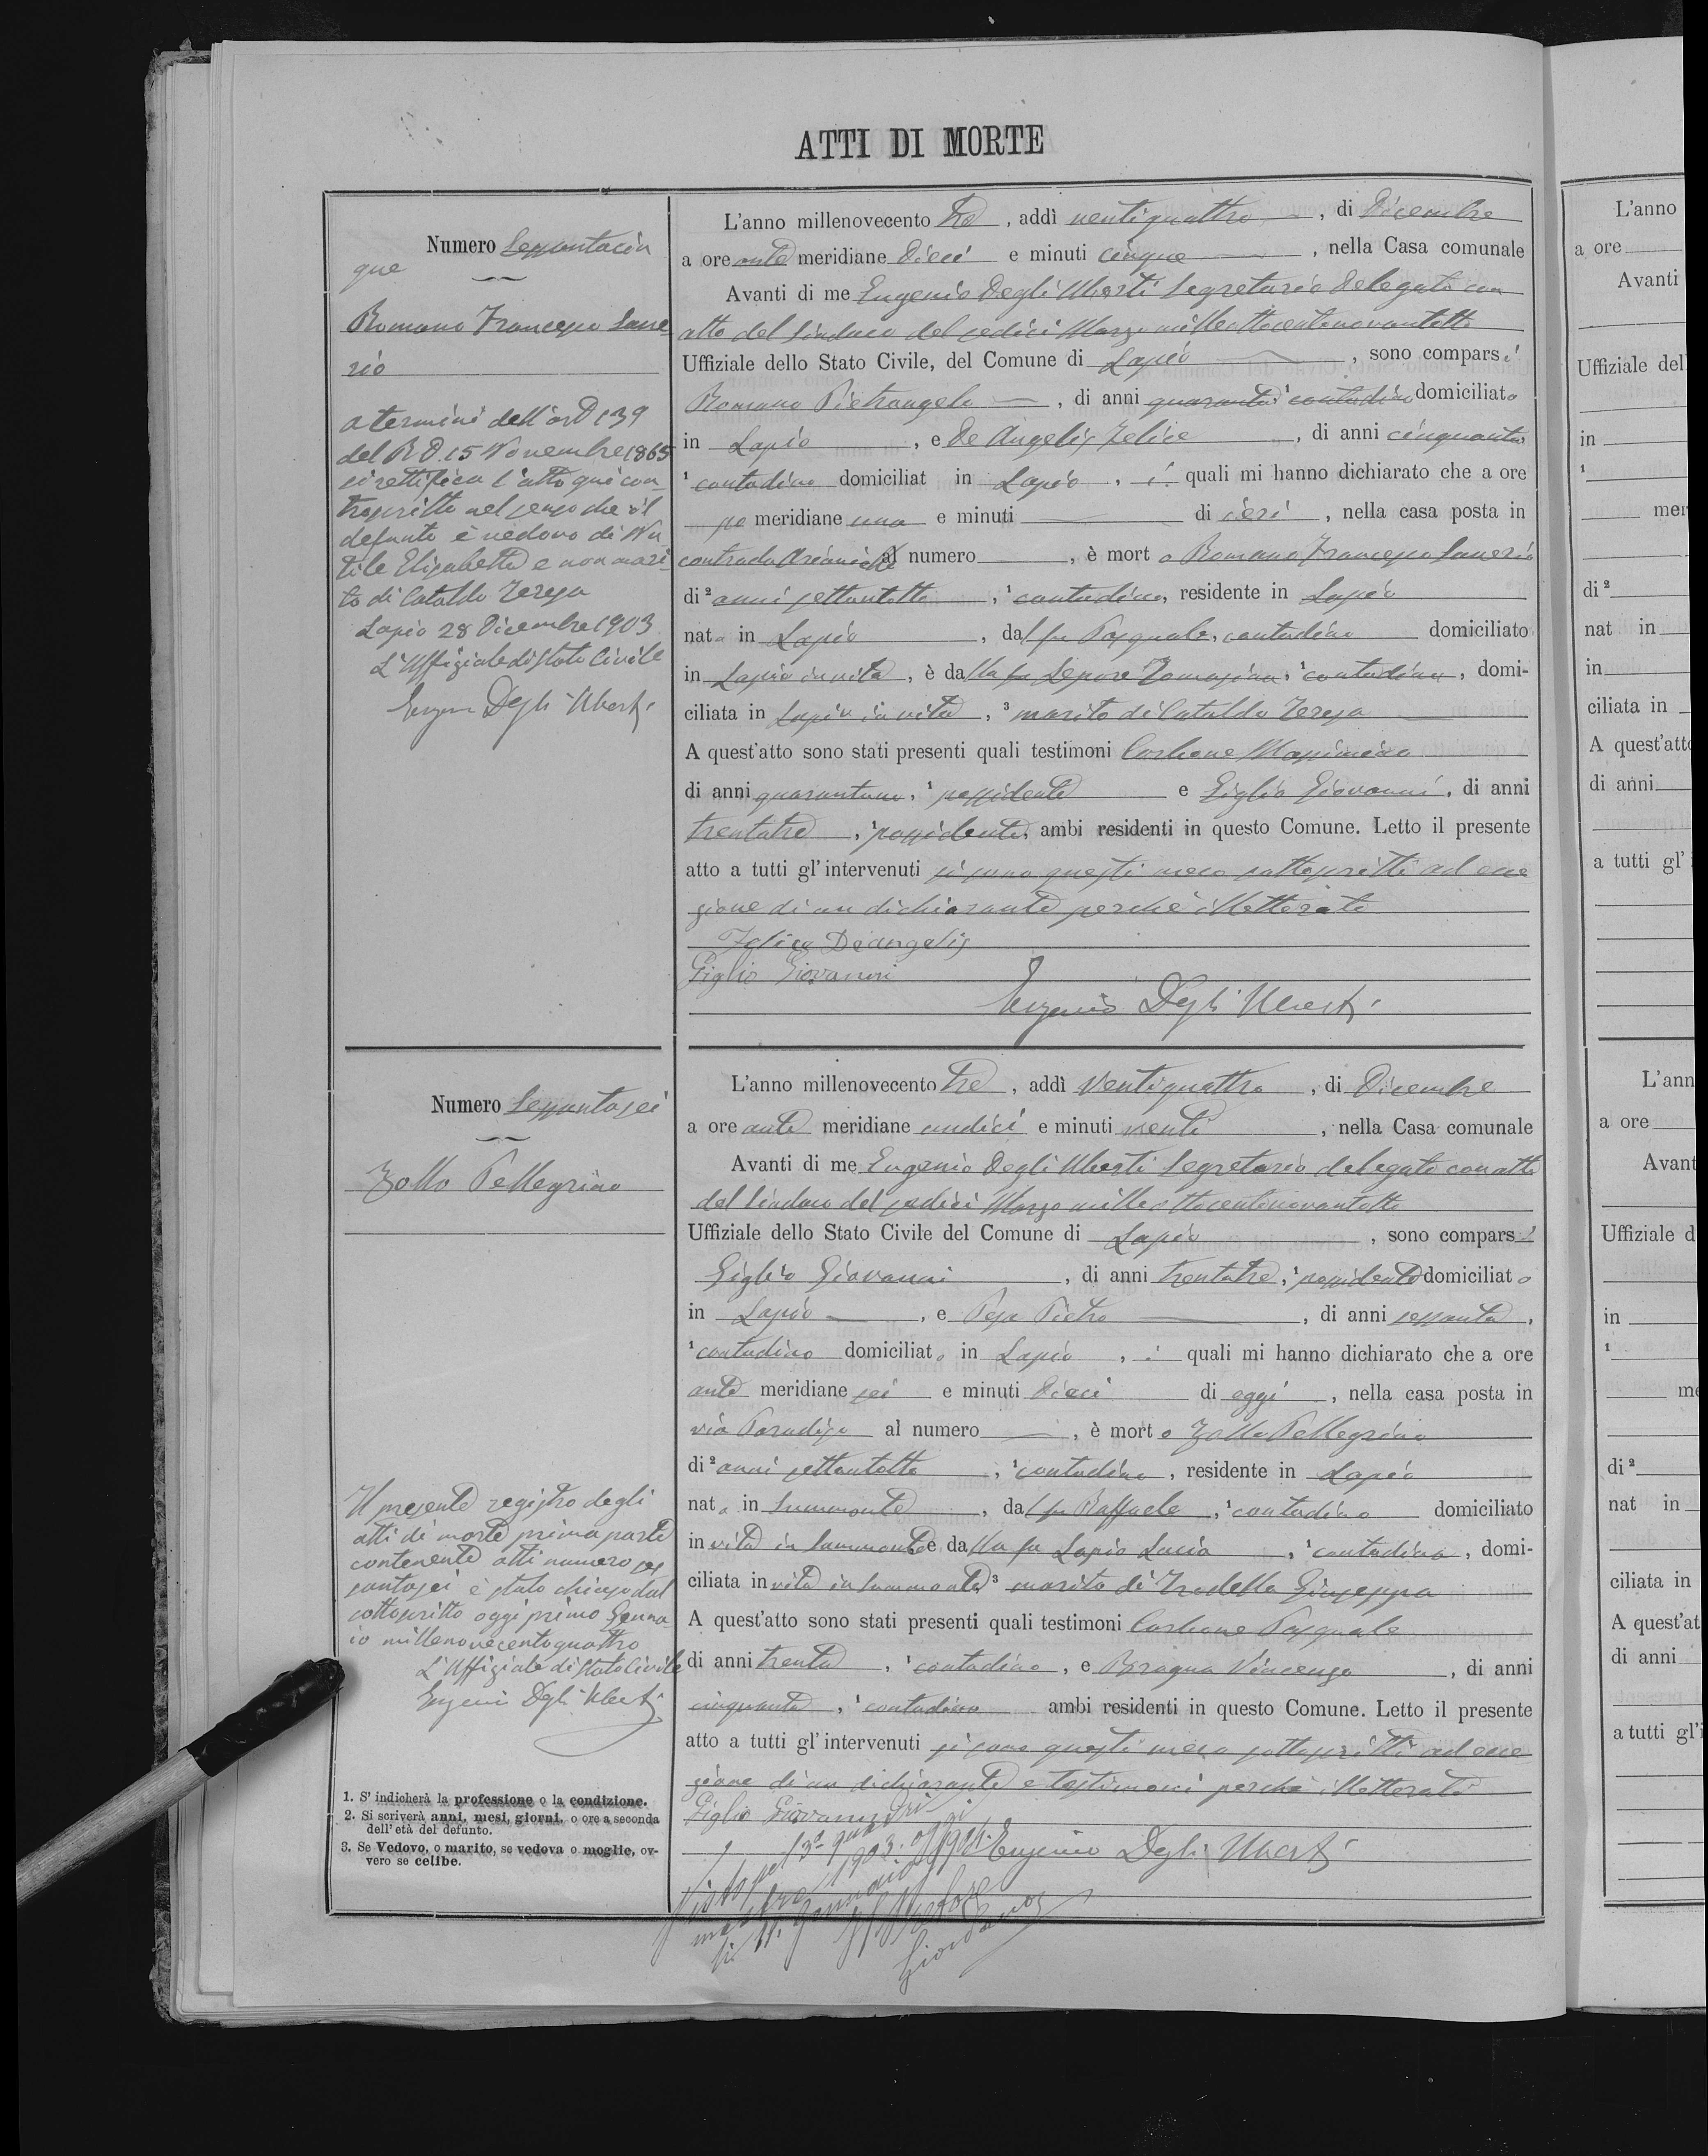 ATTI DI MORTE
Numero Sessantacin
que
Romano Francesco Save
rio
a termini dell'art 139
del R.D. 15 Novembre 1865
si rettifica l'atto qui con
troscritto nel senso che il
defunto è vedovo di Nu
tile Elisabetta e non mari
to di Cataldo Teresa
Lapio 28 Dicembre 1903
L'Uffiziale di Stato Civile
Eugenio Degli Uberti
L'anno millenovecento tre, addì ventiquattro, di Dicembre
a ore ante meridiane dieci e minuti cinque, nella Casa comunale
Avanti di me Eugenio Degli Uberti Segretario delegato con
atto del Sindaco del sedici Marzo milleottocentonovantotto
Uffiziale dello Stato Civile, del Comune di Lapio, sono comparsi
Romano Pietrangelo, di anni quaranta, 1 contadino domiciliato
in Lapio, e De Angelis Felice, di anni cinquanta
1 contadino domiciliat in Lapio, i quali mi hanno dichiarato che a ore
po meridiane una e minuti di ieri, nella casa posta in
contrada Arianiello al numero, è morto Romano Francesco Saverio
di 2 anni settantotto, 1 contadino, residente in Lapio
nato in Lapio, dal fu Pasquale, contadino domiciliato
in Lapio in vita, è dalla fu Lepore Tomasina, 1 contadina, domi-
ciliata in Lapio in vita, 3 marito di Cataldo Teresa
A quest'atto sono stati presenti quali testimoni Carbone Massimino
di anni quarantuno, 1 possidente e Giglio Giovanni, di anni
trentatre, 1 possidente, ambi residenti in questo Comune. Letto il presente
atto a tutti gl'intervenuti si sono questi meco sottoscritti ad ecce
zione di un dichiarante perchè illetterato
Felice Deangelis
Giglio Giovanni
Eugenio Degli Uberti
Numero Sessantasei
Zollo Pellegrino
Il presente registro degli
atti di morte prima parte
contenente atti numero ses
santasei è stato chiuso dal
sottoscritto oggi primo Genna
io millenovecentoquattro
L'Uffiziale di Stato Civile
Eugenio Degli Uberti
1. S'indicherà la professione o la condizione.
2. Si scriverà anni, mesi, giorni, o ore a seconda
dell'età del defunto.
3. Se Vedovo, o marito, se vedova o moglie, ov-
vero se celibe.
L'anno millenovecento tre, addì ventiquattro, di Dicembre
a ore ante meridiane undici e minuti venti, nella Casa comunale
Avanti di me Eugenio Degli Uberti Segretario delegato con atto
del Sindaco del sedici Marzo milleottocentonovantotto
Uffiziale dello Stato Civile del Comune di Lapio, sono comparsi
Giglio Giovanni, di anni trentatre, 1 possidente domiciliato
in Lapio, e Pesa Pietro, di anni sessanta,
1 contadino domiciliato in Lapio, i quali mi hanno dichiarato che a ore
ante meridiane sei e minuti dieci di oggi, nella casa posta in
via Paradiso al numero, è morto Zollo Pellegrino
di 2 anni settantotto, 1 contadino, residente in Lapio
nato in Summonte, dal fu Raffaele, 1 contadino domiciliato
in vita in Summonte è dalla fu Lapio Lucia, 1 contadina, domi-
ciliata in vita in Summonte 3 marito di Trodella Giuseppa
A quest'atto sono stati presenti quali testimoni Carbone Pasquale
di anni trenta, 1 contadino, e Bragna Vincenzo, di anni
cinquanta, 1 contadino ambi residenti in questo Comune. Letto il presente
atto a tutti gl'intervenuti si sono questi meco sottoscritti ad ecce
zione di un dichiarante e testimoni perchè illetterati
Giglio Giovanni
Eugenio Degli Uberti
Visto pel 3° quadri
mestre 1903. oggi
li 11. Gennaio 1904.
Il Pretore
L'anno
a ore
Avanti
Uffiziale del
in
1
mer
di 2
nat in
in
ciliata in
A quest'atto
di anni
a tutti gl'i
L'ann
a ore
Avant
Uffiziale d
in
1
me
di 2
nat in
in
ciliata in
A quest'at
di anni
a tutti gl'i